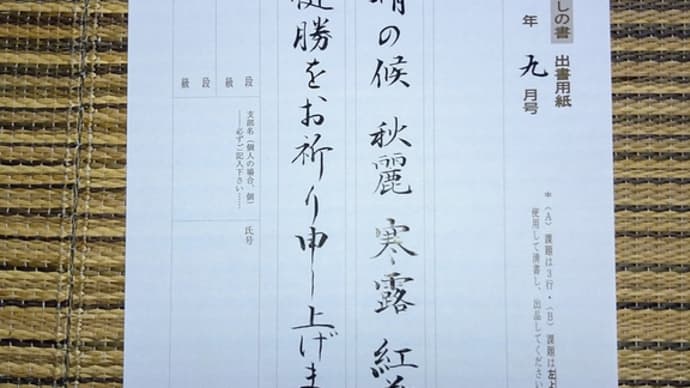 しの書 出書用紙
年 九 月号
*(A)課題は3行・(B)課題は左よ
使用して清書し、出品してください
の候 秋麗 寒露 紅
勝をお祈り申し上げま
段 級 段 級
支部名(個人の場合、個)
……必ずご記入下さい……
氏号